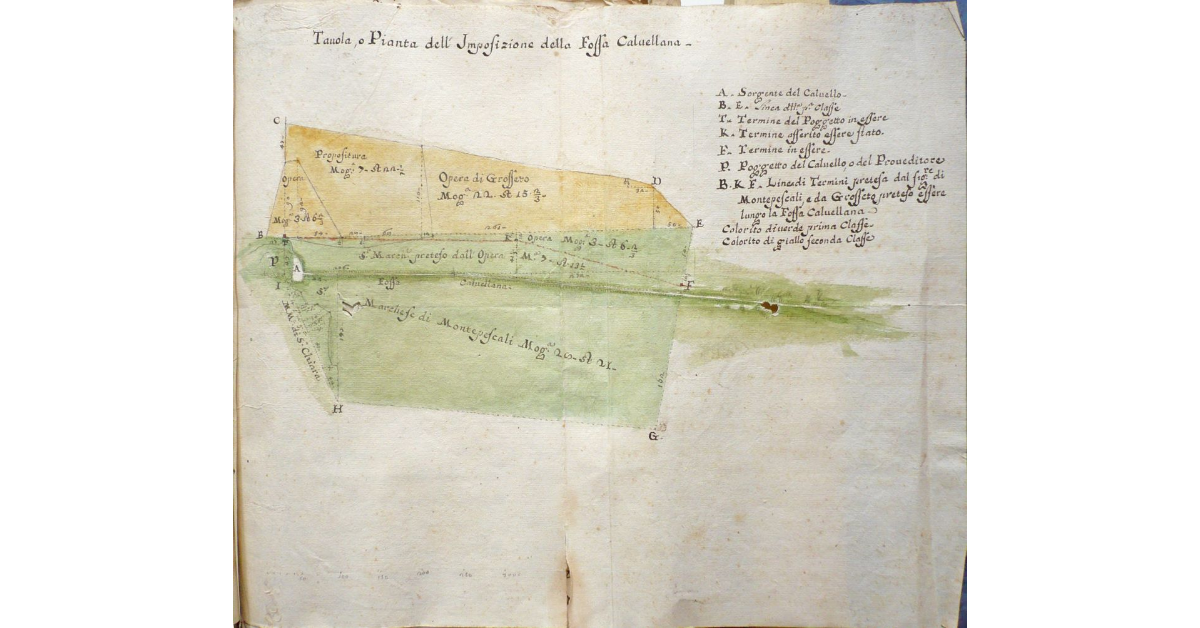 Tauola, o Pianta dell' Imposizione della Fossa Caluellana
A. Sorgente del Caluello.
B. E. Linea della pa. Classe
T. Termine del Poggetto in essere
K. Termine asserito essere stato.
F. Termine in essere.
P. Poggetto del Caluello, o del Proueditore
B. K F. Linea di Termini pretesa dal sigre. di
Montepescali, e da Grosseto preteso essere
lungo la Fossa Caluellana
Colorito di uerde prima Classe.
Colorito di giallo seconda Classe
C
Propositura
Mog. 7 - St
Opera
Opera di Grosseto
Mog. 22. St 15 2/3
D
Mog. 3 St 6 2/3
E
B
K Opera Mog. 3 - St 6 2/3
Sr. Marche. preteso dall Opera
M. 7 - St 13
P
A
I
F
Fossa Caluellana
Sr.
Marchese di Montepescali Mog. 20 - St 21.
M.M. di Sa. Chiara
H
G.